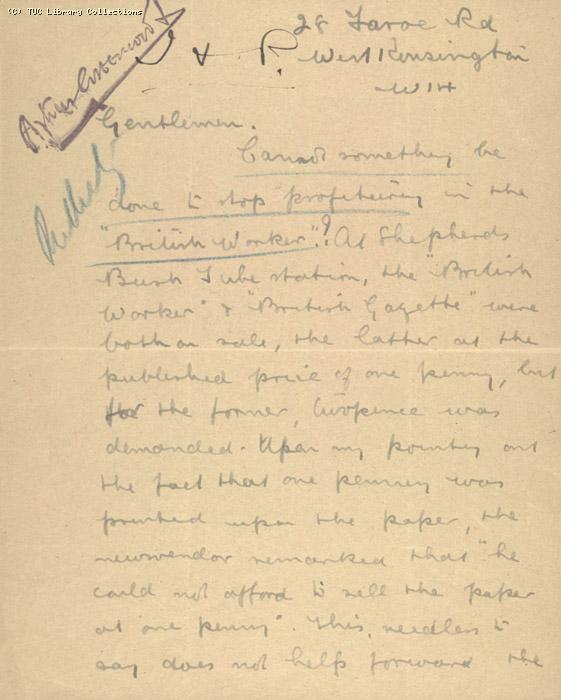 (C) TUC Library Collections
28 Faroe Rd
West Kensington
W14
J & P.
Gentlemen.
Cannot something be
done to stop profiteering in the
"British Worker"? At Shepherds
Bush Tube station, the "British
Worker" & "British Gazette" were
both on sale, the latter at the
published price of one penny, but
for the former, twopence was
demanded. Upon my pointing out
the fact that one penney was
printed upon the paper, the
newsvendor remarked that "he
could not afford to sell the paper
at one penny". This, needless to
say does not help forward the